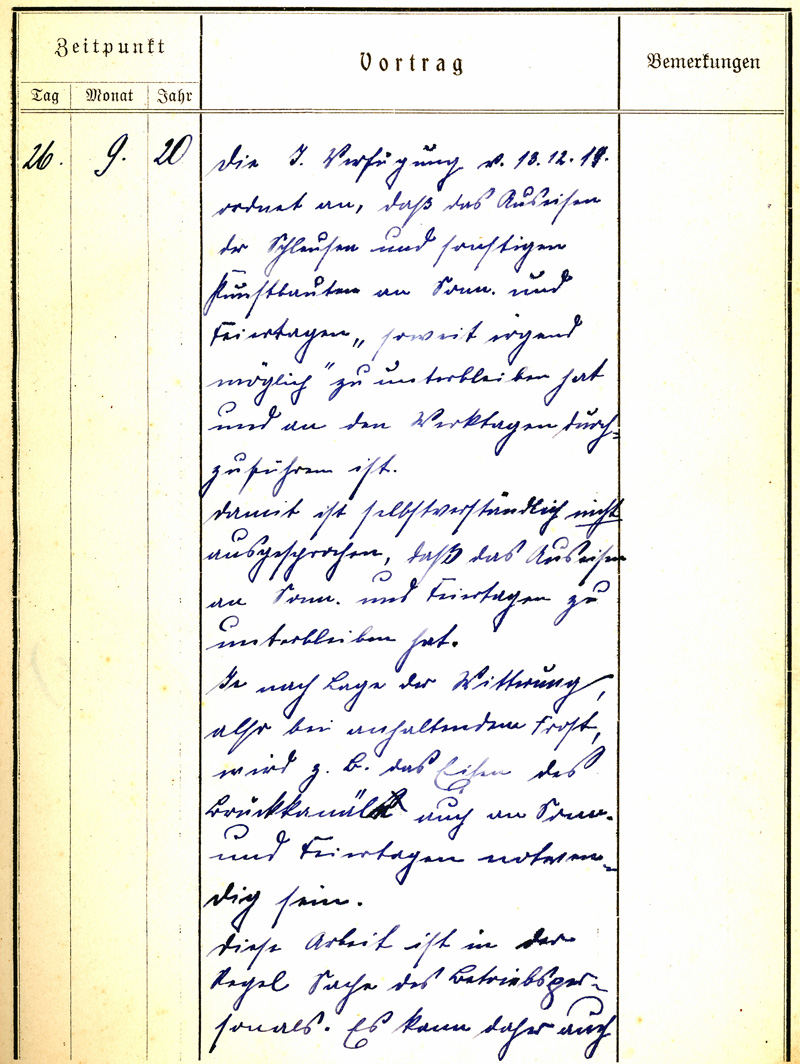 Zeitpunkt
Vortrag
Bemerkungen
Tag Monat Jahr
26. 9. 20 Die I. Verfügung v. 13.12.19.
ordnet an, daß das Auseisen
der Schleusen und sonstigen
Kunstbauten an Sonn- und
Feiertagen „soweit irgend
möglich" zu unterbleiben hat
und an den Werktagen durch-
zuführen ist.
Damit ist selbstverständlich nicht
ausgesprochen, daß das Auseisen
an Sonn- und Feiertagen zu
unterbleiben hat.
Je nach Lage der Witterung,
also bei anhaltendem Frost,
wird z. B. das Eisen des
Brückkanals auch an Sonn-
und Feiertagen notwen-
dig sein.
Diese Arbeit ist in der
Regel Sache des Betriebsper-
sonals. Es kann daher auch